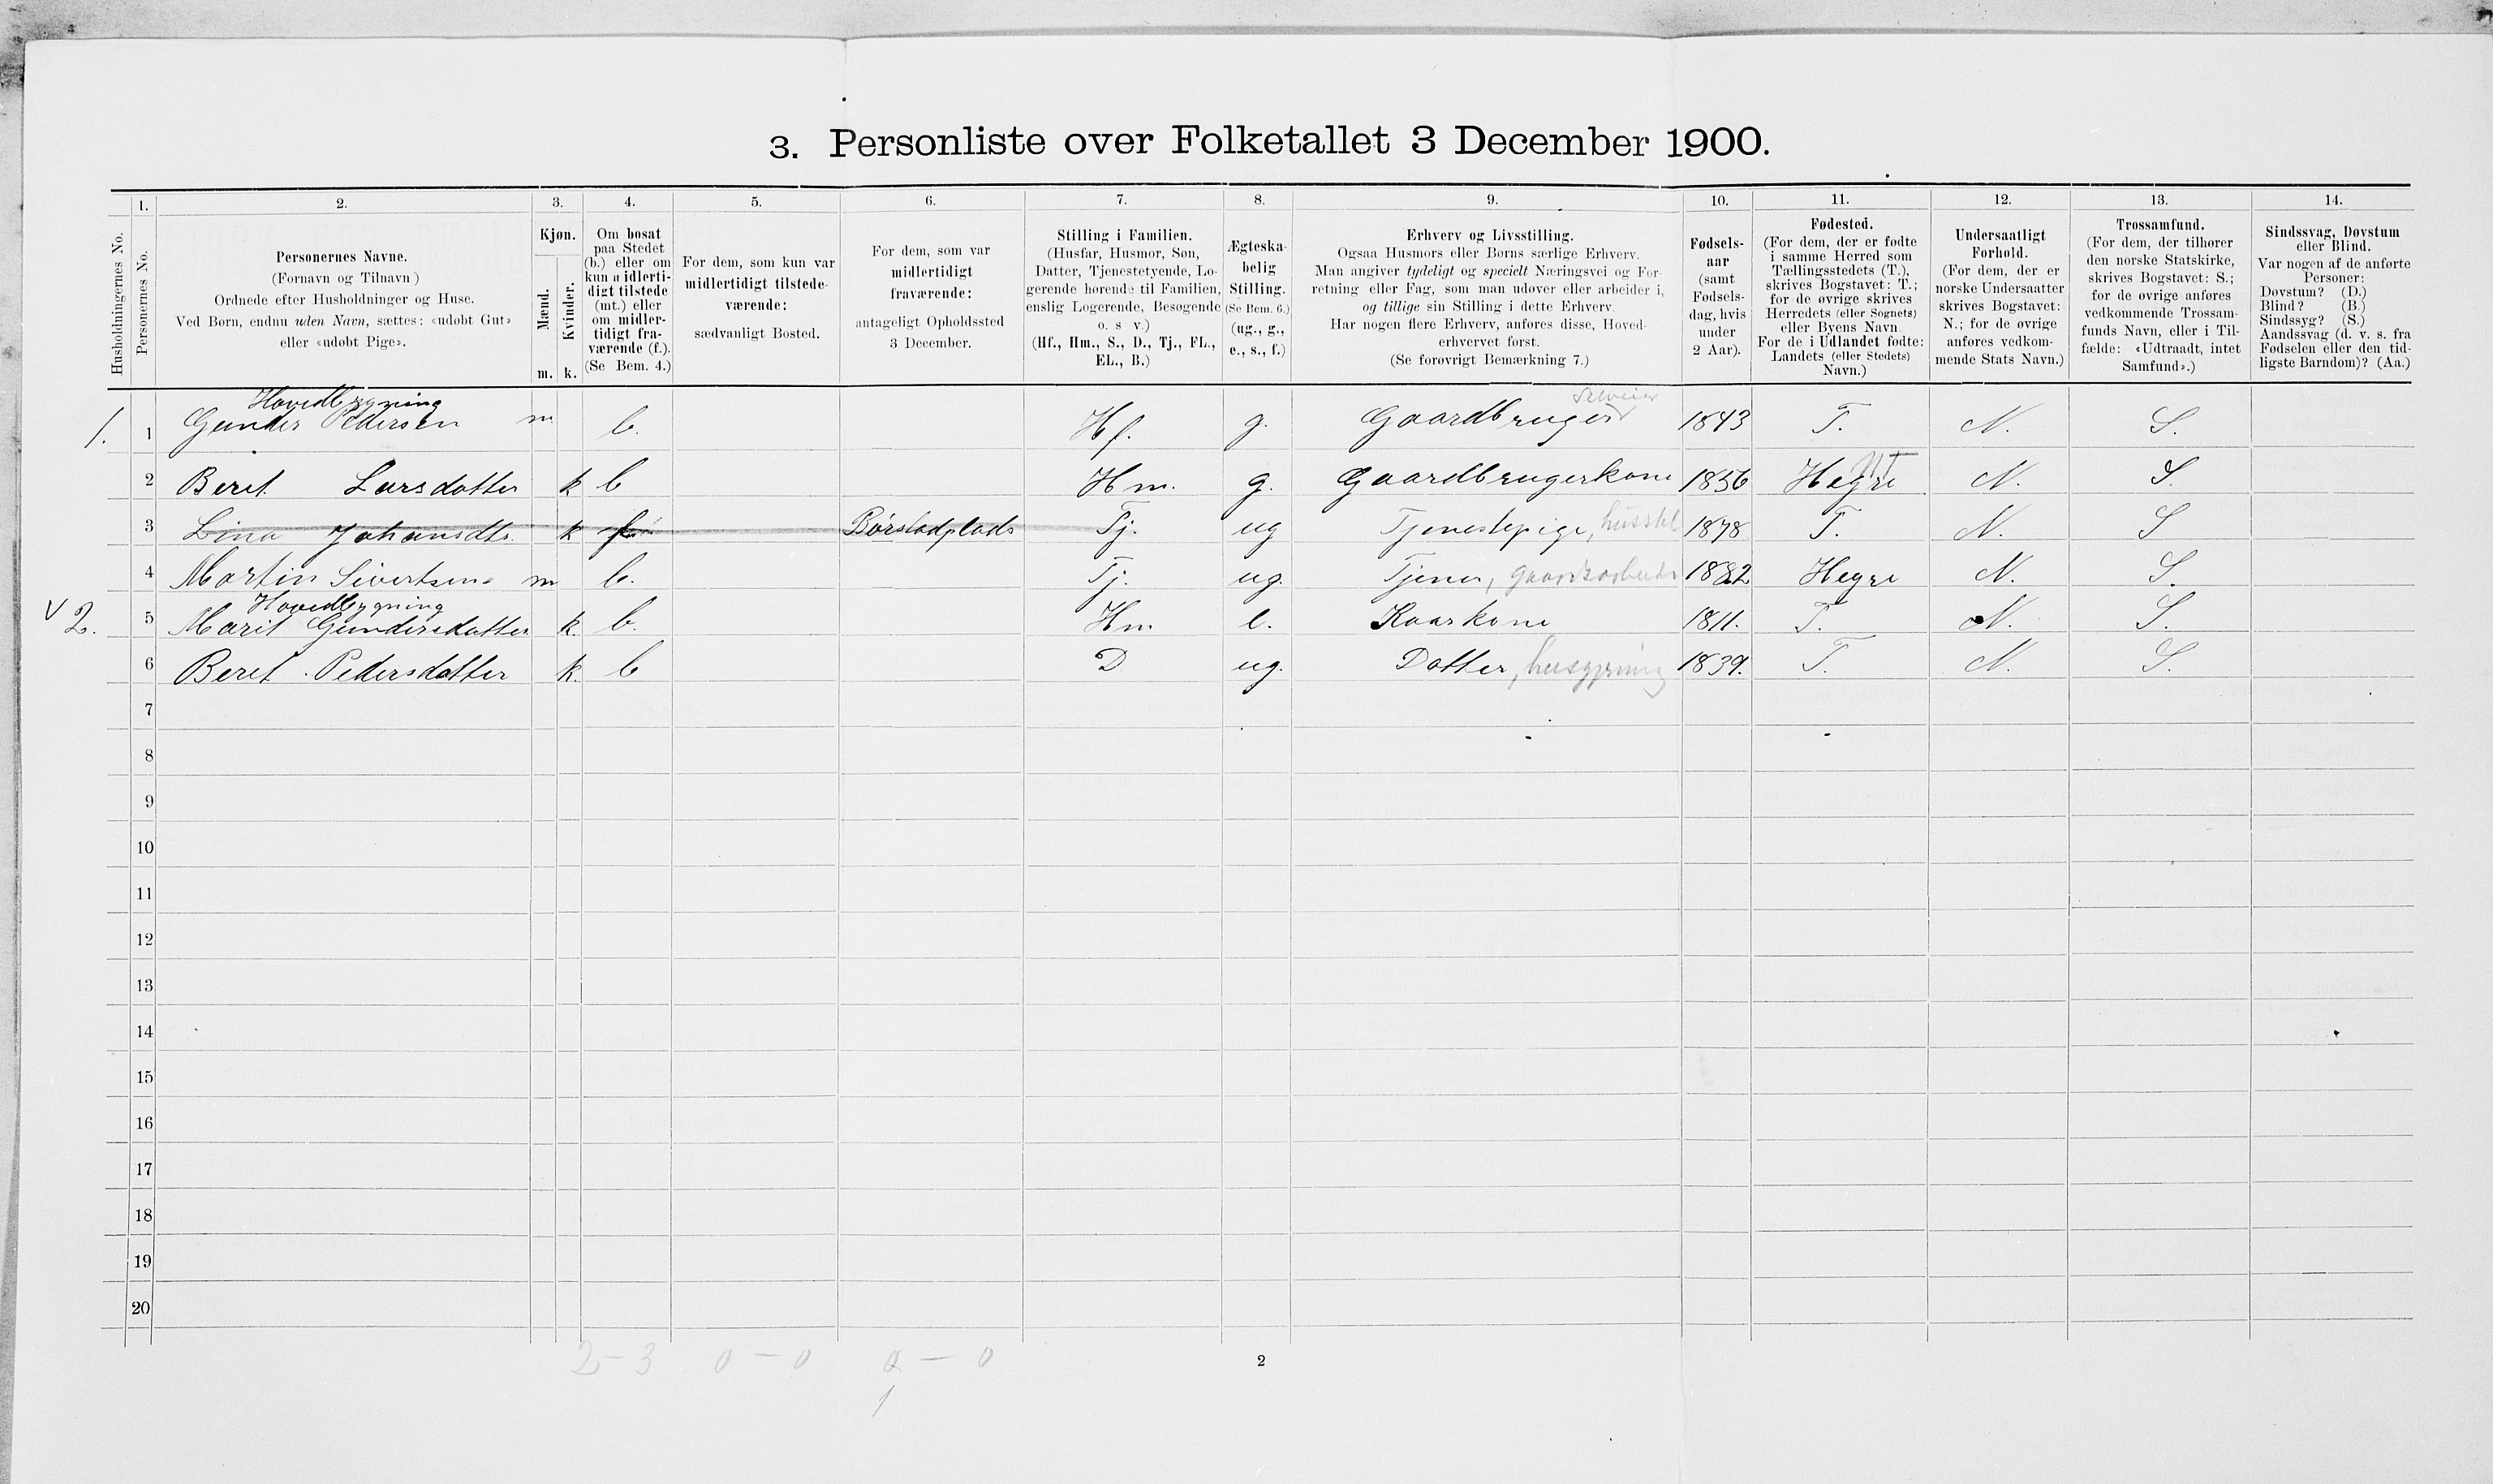 3. Personliste over Folketallet 3 December 1900.
1. 2. 3. 4. 5. 6. 7. 8. 9. 10. 11. 12. 13. 14.
Husholdningernes No.
Personernes No.
Personernes Navne.
(Fornavn og Tilnavn)
Ordnede efter Husholdninger og Huse.
Ved Børn, endnu uden Navn, sættes: «udøbt Gut»
eller «udøbt Pige».
Kjøn.
Mænd.
m.
Kvinder.
k.
Om bosat
paa Stedet
(b.) eller om
kun midlerti-
digt tilstede
(mt.) eller
om midler-
tidigt fra-
værende (f.).
(Se Bem. 4.)
For dem, som kun var
midlertidigt tilstede-
værende:
sædvanligt Bosted.
For dem, som var
midlertidigt
fraværende:
antageligt Opholdssted
3 December.
Stilling i Familien.
(Husfar, Husmor, Søn,
Datter, Tjenestetyende, Lo-
gerende hørende til Familien,
enslig Logerende, Besøgende
o. s. v.)
(Hf., Hm., S., D., Tj., FL.,
EL., B.)
Ægteska-
belig
Stilling.
(Se Bem. 6.)
(ug., g.,
e., s., f.)
Erhverv og Livsstilling.
Ogsaa Husmors eller Børns særlige Erhverv.
Man angiver tydeligt og specielt Næringsvei og For-
retning eller Fag, som man udøver eller arbeider i,
og tillige sin Stilling i dette Erhverv.
Har nogen flere Erhverv, anføres disse, Hoved-
erhvervet først.
(Se forøvrigt Bemærkning 7.)
Fødsels-
aar
(samt
Fødsels-
dag, hvis
under
2 Aar).
Fødested.
(For dem, der er fødte
i samme Herred som
Tællingsstedets (T.),
skrives Bogstavet: T.;
for de øvrige skrives
Herredets (eller Sognets)
eller Byens Navn.
For de i Udlandet fødte:
Landets (eller Stedets)
Navn.)
Undersaatligt
Forhold.
(For dem, der er
norske Undersaatter
skrives Bogstavet:
N.; for de øvrige
anføres vedkom-
mende Stats Navn.)
Trossamfund.
(For dem, der tilhører
den norske Statskirke,
skrives Bogstavet: S.;
for de øvrige anføres
vedkommende Trossam-
funds Navn, eller i Til-
fælde: «Udtraadt, intet
Samfund».)
Sindssvag, Døvstum
eller Blind.
Var nogen af de anførte
Personer:
Døvstum? (D.)
Blind? (B.)
Sindssyg? (S.)
Aandssvag (d. v. s. fra
Fødselen eller den tid-
ligste Barndom)? (Aa.)
Hovedbygning Selveier
1. 1 Gunder Pedersen m b. Hf. g. Gaardbruger 1843 T. N. S.
2 Beret Larsdatter k b Hm. g. Gaardbrugerkone 1856 Hegre N. S.
3 Lina Johansdtr. k f. Børstadplads Tj. ug Tjenestepige, husstel 1878 T. N. S
4 Martin Sivertsen m b. Tj. ug. Tjener, gaardsarbeide 1882 Hegre N. S.
Hovedbygning
v 2. 5 Marit Gundersdatter k. b. Hm e. Kaarkone 1811. T. N. S.
6 Beret Pedersdatter k. b D ug. Datter, husgjerning 1839. T. N. S.
7
8
9
10
11
12
13
14
15
16
17
18
19
20
2-3 0-0 - 0
1
2